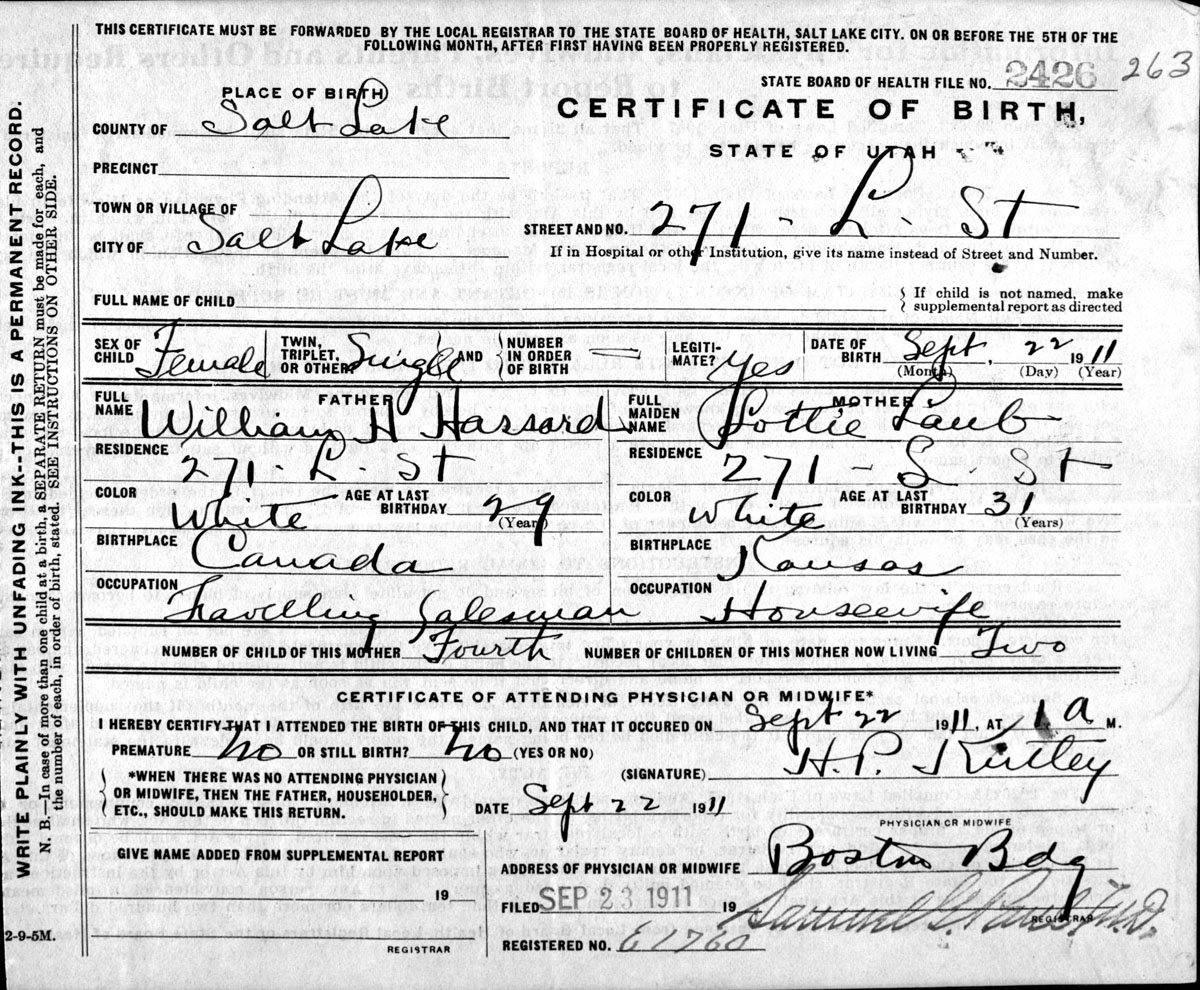 THIS CERTIFICATE MUST BE FORWARDED BY THE LOCAL REGISTRAR TO THE STATE BOARD OF HEALTH, SALT LAKE CITY. ON OR BEFORE THE 5TH OF THE
FOLLOWING MONTH, AFTER FIRST HAVING BEEN PROPERLY REGISTERED.
STATE BOARD OF HEALTH FILE NO. 2426 263
PLACE OF BIRTH
CERTIFICATE OF BIRTH,
COUNTY OF Salt Lake
STATE OF UTAH.
PRECINCT
TOWN OR VILLAGE OF
STREET AND NO. 271 - L St
CITY OF Salt Lake
If in Hospital or other Institution, give its name instead of Street and Number.
FULL NAME OF CHILD
If child is not named, make
supplemental report as directed
SEX OF CHILD Female
TWIN, TRIPLET, OR OTHER? Single AND NUMBER IN ORDER OF BIRTH —
LEGITI-MATE? Yes
DATE OF BIRTH Sept 22 1911
(Month) (Day) (Year)
FATHER
FULL NAME William H Harsard
MOTHER
FULL MAIDEN NAME Lottie Laub
RESIDENCE 271 - L - ST
RESIDENCE 271 - L ST
COLOR White AGE AT LAST BIRTHDAY 29 (Years)
COLOR White AGE AT LAST BIRTHDAY 31 (Years)
BIRTHPLACE Canada
BIRTHPLACE Kansas
OCCUPATION Travelling Salesman
OCCUPATION Housewife
NUMBER OF CHILD OF THIS MOTHER Fourth NUMBER OF CHILDREN OF THIS MOTHER NOW LIVING Two
CERTIFICATE OF ATTENDING PHYSICIAN OR MIDWIFE*
I HEREBY CERTIFY THAT I ATTENDED THE BIRTH OF THIS CHILD, AND THAT IT OCCURED ON Sept 22 1911, AT 1 a M.
PREMATURE No OR STILL BIRTH? No (YES OR NO)
*WHEN THERE WAS NO ATTENDING PHYSICIAN
OR MIDWIFE, THEN THE FATHER, HOUSEHOLDER,
ETC., SHOULD MAKE THIS RETURN.
(SIGNATURE) H. P. Kirtley
DATE Sept 22 1911
PHYSICIAN OR MIDWIFE
GIVE NAME ADDED FROM SUPPLEMENTAL REPORT
19
REGISTRAR
ADDRESS OF PHYSICIAN OR MIDWIFE Boston Bdg
FILED SEP 23 1911 19 Samuel G. M.D.
REGISTRAR
REGISTERED NO. 61760
2-9-5M.
WRITE PLAINLY WITH UNFADING INK--THIS IS A PERMANENT RECORD.
N. B.—In case of more than one child at a birth, a SEPARATE RETURN must be made for each, and
the number of each, in order of birth, stated. SEE INSTRUCTIONS ON OTHER SIDE.